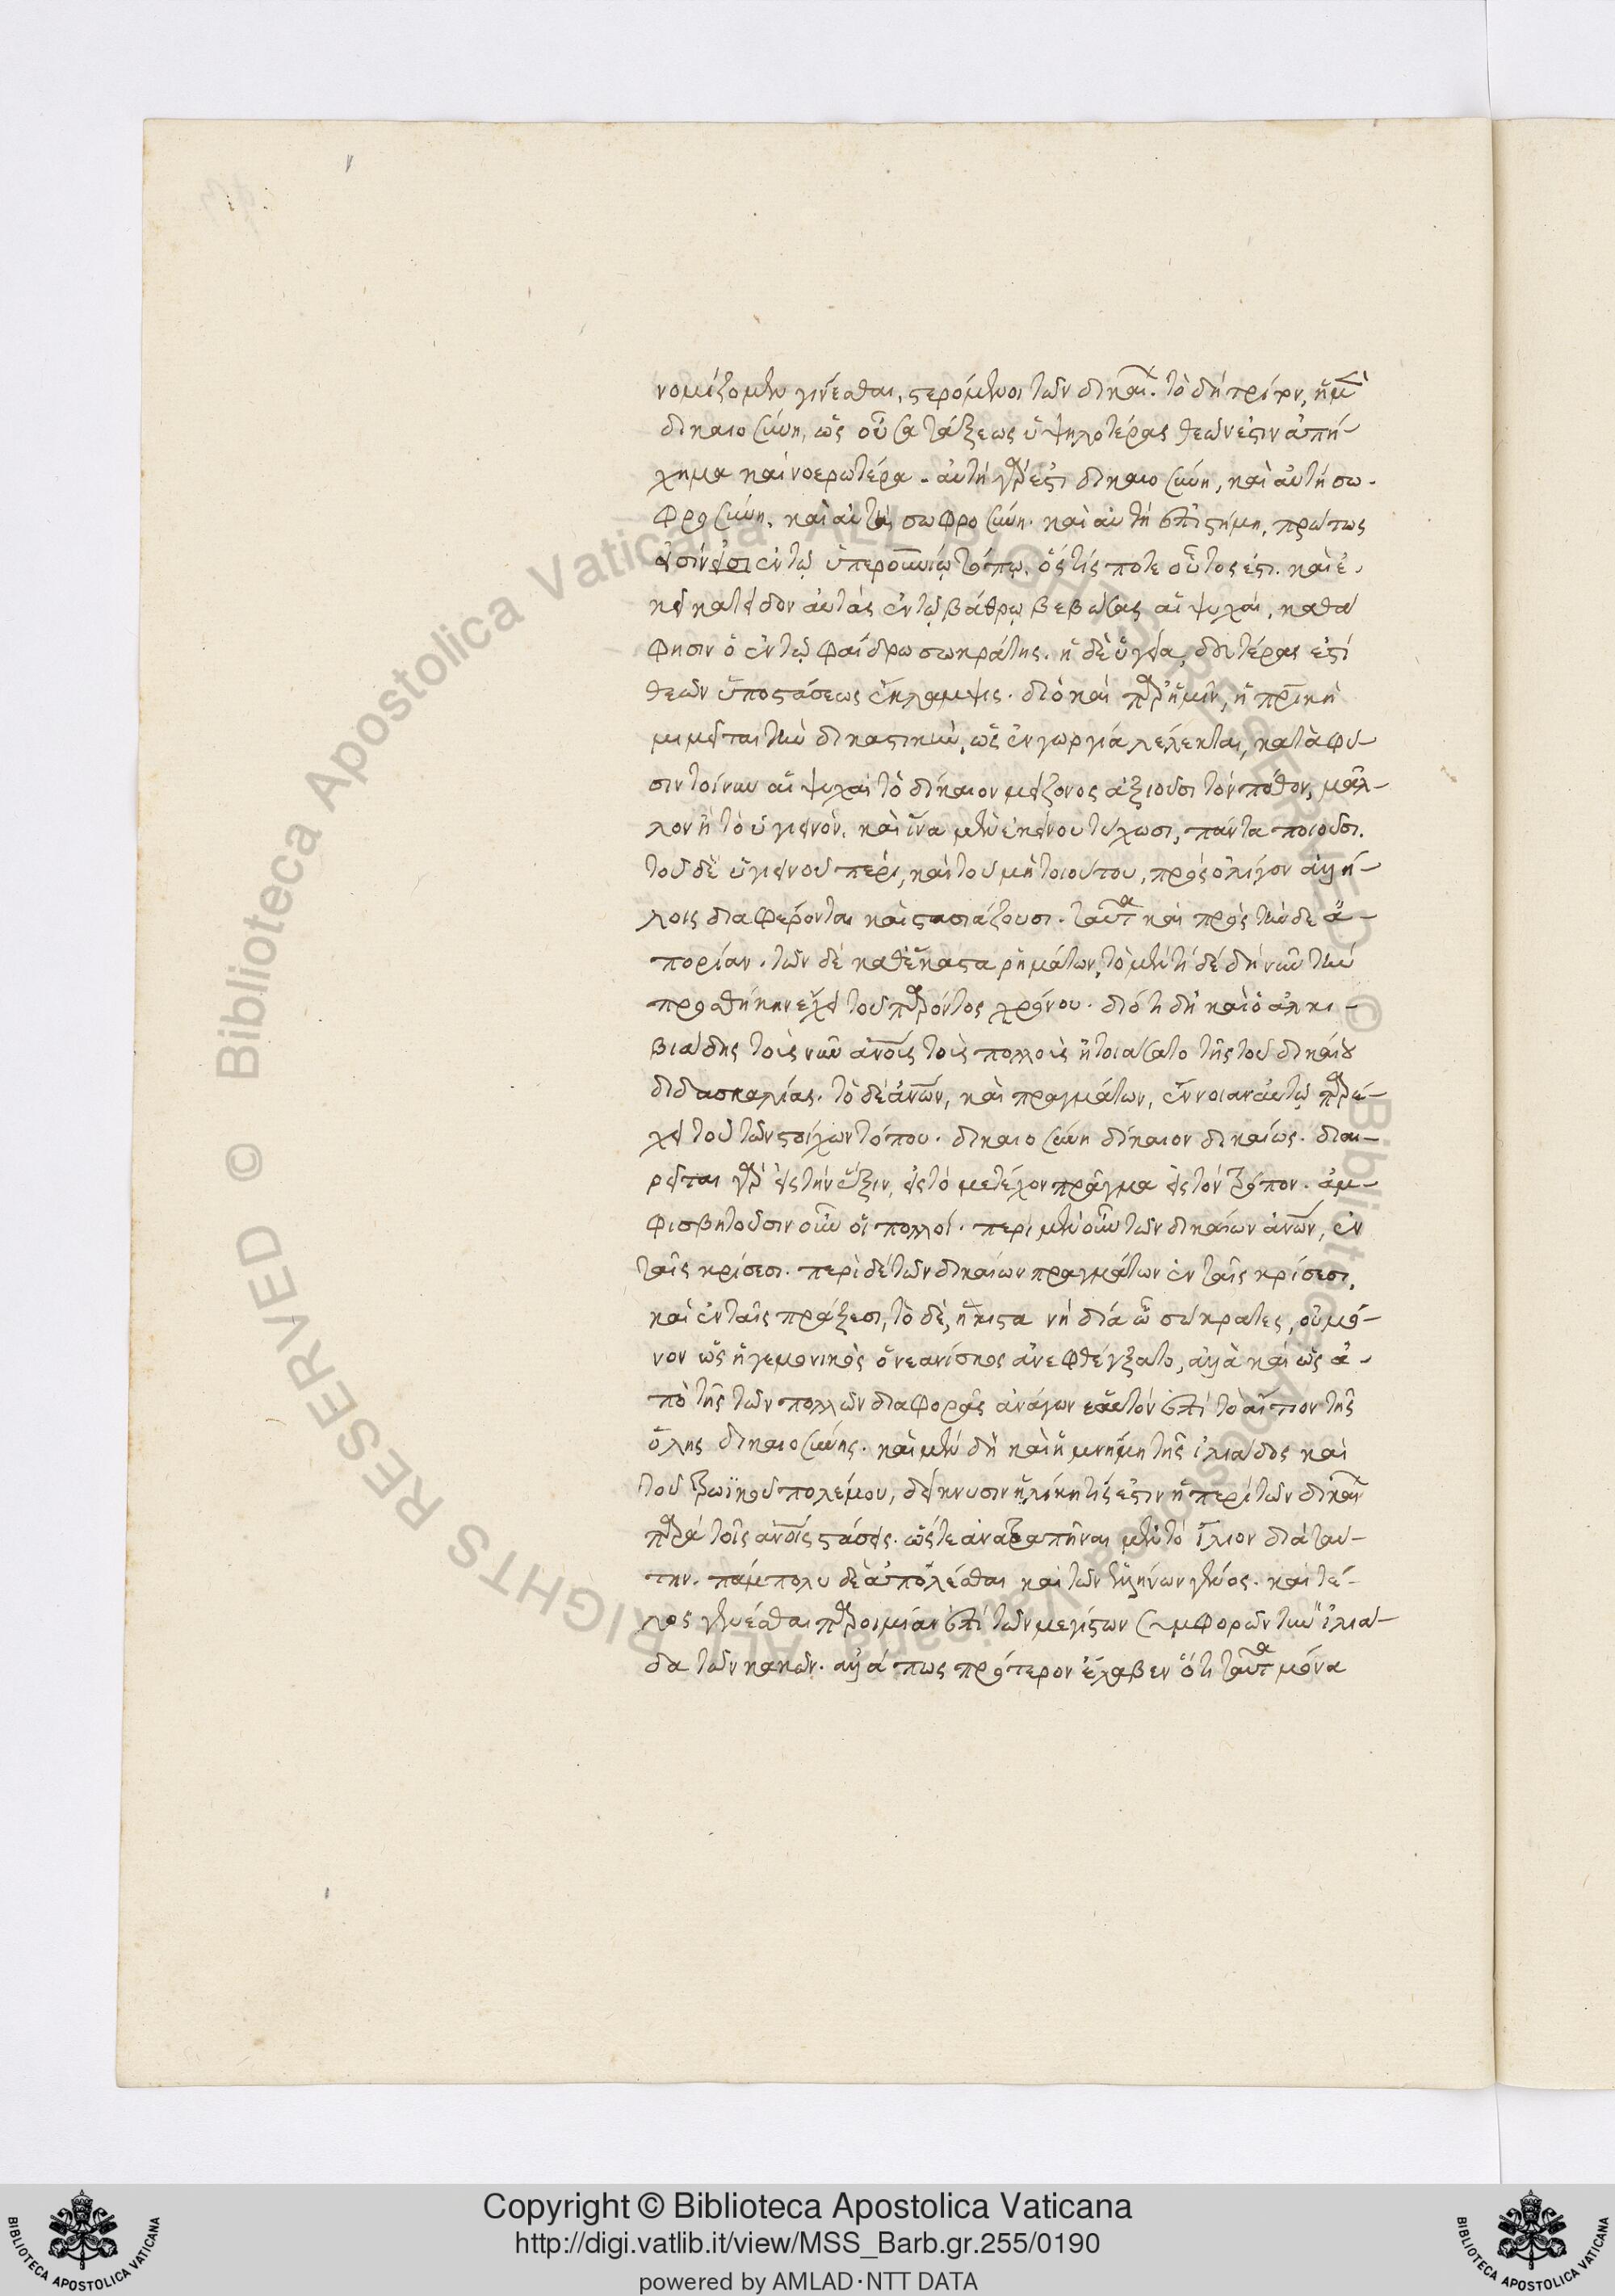 νομίζομεν γινέσθαι, στερόμενοι τῶν δικαί. τὸ δὴ τρίτον, ἡ μὲν
δικαιοσύνη, ὡς οὖσα τάξεως ὑψηλοτέρας θεῶν ἐστιν ἀπή-
χημα καὶ νοερωτέρα. αὐτὴ γάρ ἐστι δικαιοσύνη, καὶ αὐτὴ σω-
φροσύνη. καὶ αὐτὴ σωφροσύνη. καὶ αὐτὴ ἐπιστήμη, πρώτως
εἰσὶν ἐν τῷ ὑπερουνίῳ τόπῳ, ὅστίς ποτε οὗτος ἐστι. καὶ ἐ-
κεῖ κατεῖδον αὐτὰς ἐν τῷ βάθρῳ βεβώσας αἱ ψυχαί, καθά
φησιν ὁ ἐν τῷ φαίδρῳ σωκράτης. ἡ δὲ ὑγεία, δευτέρας ἐστὶ
θεῶν ὑποστάσεως ἔκλαμψις. διὸ καὶ παρ' ἡμῖν, ἡ ἰατρικὴ
μιμεῖται τὴν δικαστικὴν, ὡς ἐν γωργία λέλεκται, κατὰ φύ-
σιν τοίνυν αἱ ψυχαὶ τὸ δίκαιον μείζονος ἀξιοῦσι τὸν πόθον, μᾶλ-
λον ἢ τὸ ὑγιεινόν. καὶ ἵνα μὲν ἐκείνου τύχωσι, πάντα ποιοῦσι.
τοῦ δὲ ὑγιεινοῦ πέρι, καὶ τοῦ μὴ τοιούτου, πρὸς ὀλίγον ἀλλή-
λοις διαφέρονται καὶ στασιάζουσι. ταῦτα καὶ πρὸς τὴν δε ἀ-
πορίαν. τῶν δὲ καθέκαστα ῥημάτων, τὸ μὲν τί δέ δὴ νῦν τὴν
προσθήκην εἶχε τοῦ παρόντος χρόνου. διότι δὴ καὶ ὁ ἀλκι-
βιάδης τοῖς νῦν ἀνοις τοῖς πολλοῖς ᾐτιάσατο τῆς τοῦ δικαίου
διδασκαλίας. τὸ δὲ ἀνων, καὶ πραγμάτων, ἔννοιαν αὐτῷ παρέ-
χει τοῦ τῶν στοίχων τόπου. δικαιοσύνη δίκαιον δικαίως. διαι-
ρεῖται γὰρ εἰς τὴν ἕξιν, εἰς τὸ μετέχον πρᾶγμα εἰς τὸν τρόπον. ἀμ-
φισβητοῦσιν οὖν οἱ πολλοί. περὶ μὲν οὖν τῶν δικαίων ἀνων, ἐν
ταῖς κρίσεσι. περὶ δὲ τῶν δικαίων πραγμάτων ἐν ταῖς κρίσεσι,
καὶ ἐν ταῖς πράξεσι, τὸ δὲ, ἥκιστα νὴ δία ὦ σώκρατες, οὐ μό-
νον ὡς ἡγεμονικὸς ὁ νεανίσκος ἀνεφθέγξατο, ἀλλὰ καὶ ὡς ἀ-
πὸ τῆς τῶν πολλῶν διαφορᾶς ἀνάγων ἑαυτὸν ἐπὶ τὸ αἴτιον τῆς
ὅλης δικαιοσύνης. καὶ μὲν δὴ καὶ ἡ μνήμη τῆς ἰλιάδος καὶ
τοῦ τρωϊκοῦ πολέμου, δείκνυσιν ἡλίκη τίς ἐστιν ἡ περὶ τῶν δικαί
παρὰ τοῖς ἀνοις στάσις. ὥστε ἀνατραπῆναι μὲν τὸ ἴλιον διὰ ταύ-
την. πάμπολυ δὲ ἀπολέσθαι καὶ τῶν ἑλλήνων γένος. καὶ τέ-
λος γενέσθαι παροιμίαν ἐπὶ τῶν μεγίστων συμφορῶν τὴν ἰλιά-
δα τῶν κακῶν. ἀλλά πως πρότερον ἔλαβεν ὅτι ταῦτα μόνα
Copyright © Biblioteca Apostolica Vaticana
http://digi.vatlib.it/view/MSS_Barb.gr.255/0190
powered by AMLAD·NTT DATA